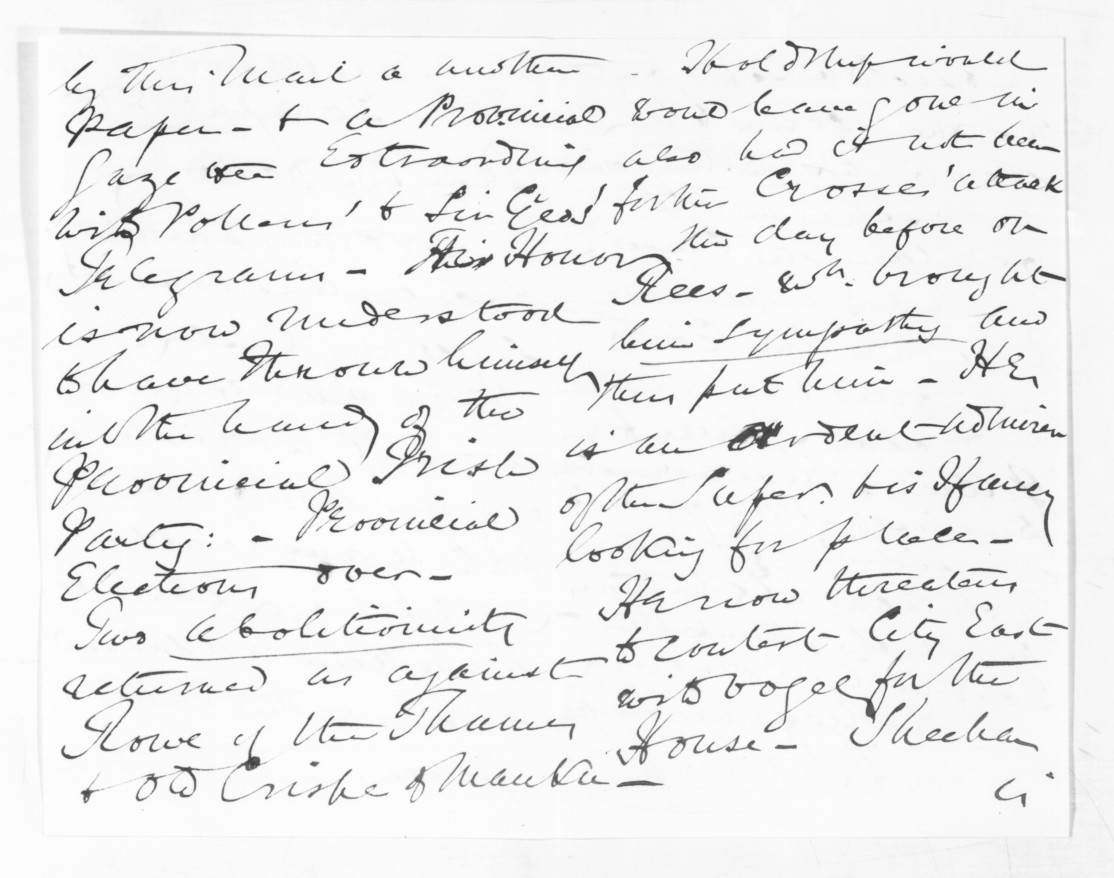 by this Mail a another
Paper - & a Provincial
Gaze tte Extraordinry
with Pollens' & Sir Geos'
Telegrams - His Honor
is now understood
to have thrown himself
into the hands of the
Provincial Irish
Party: - Provincial
Elections over -
Two abolitionists
returned as against
Rowe of the Thames
& old Crispe of Mauku -
Holdship would
have gone in
also had it not been
for the Crosses' attack
the day before on
Rees - wh. brought
him sympathy and
thus put him - He
is an ardent admirer
of the Super. & is I fancy
looking for place -
He now threatens
to contest City East
with Vogel for the
House - Sheehan
is